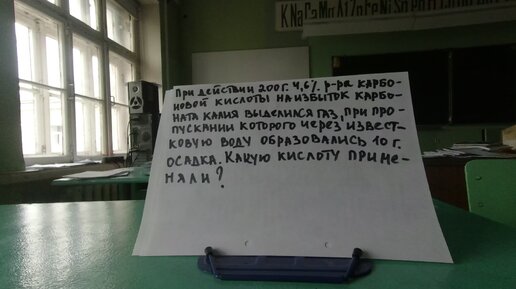 K Na Ca Mg Al Zn Fe Ni Sn
При действии 200 г. 4,6% р-ра карбо-
новой кислоты на избыток карбо-
ната калия выделился газ, при про-
пускании которого через извест-
ковую воду образовались 10 г.
осадка. Какую кислоту приме-
няли?